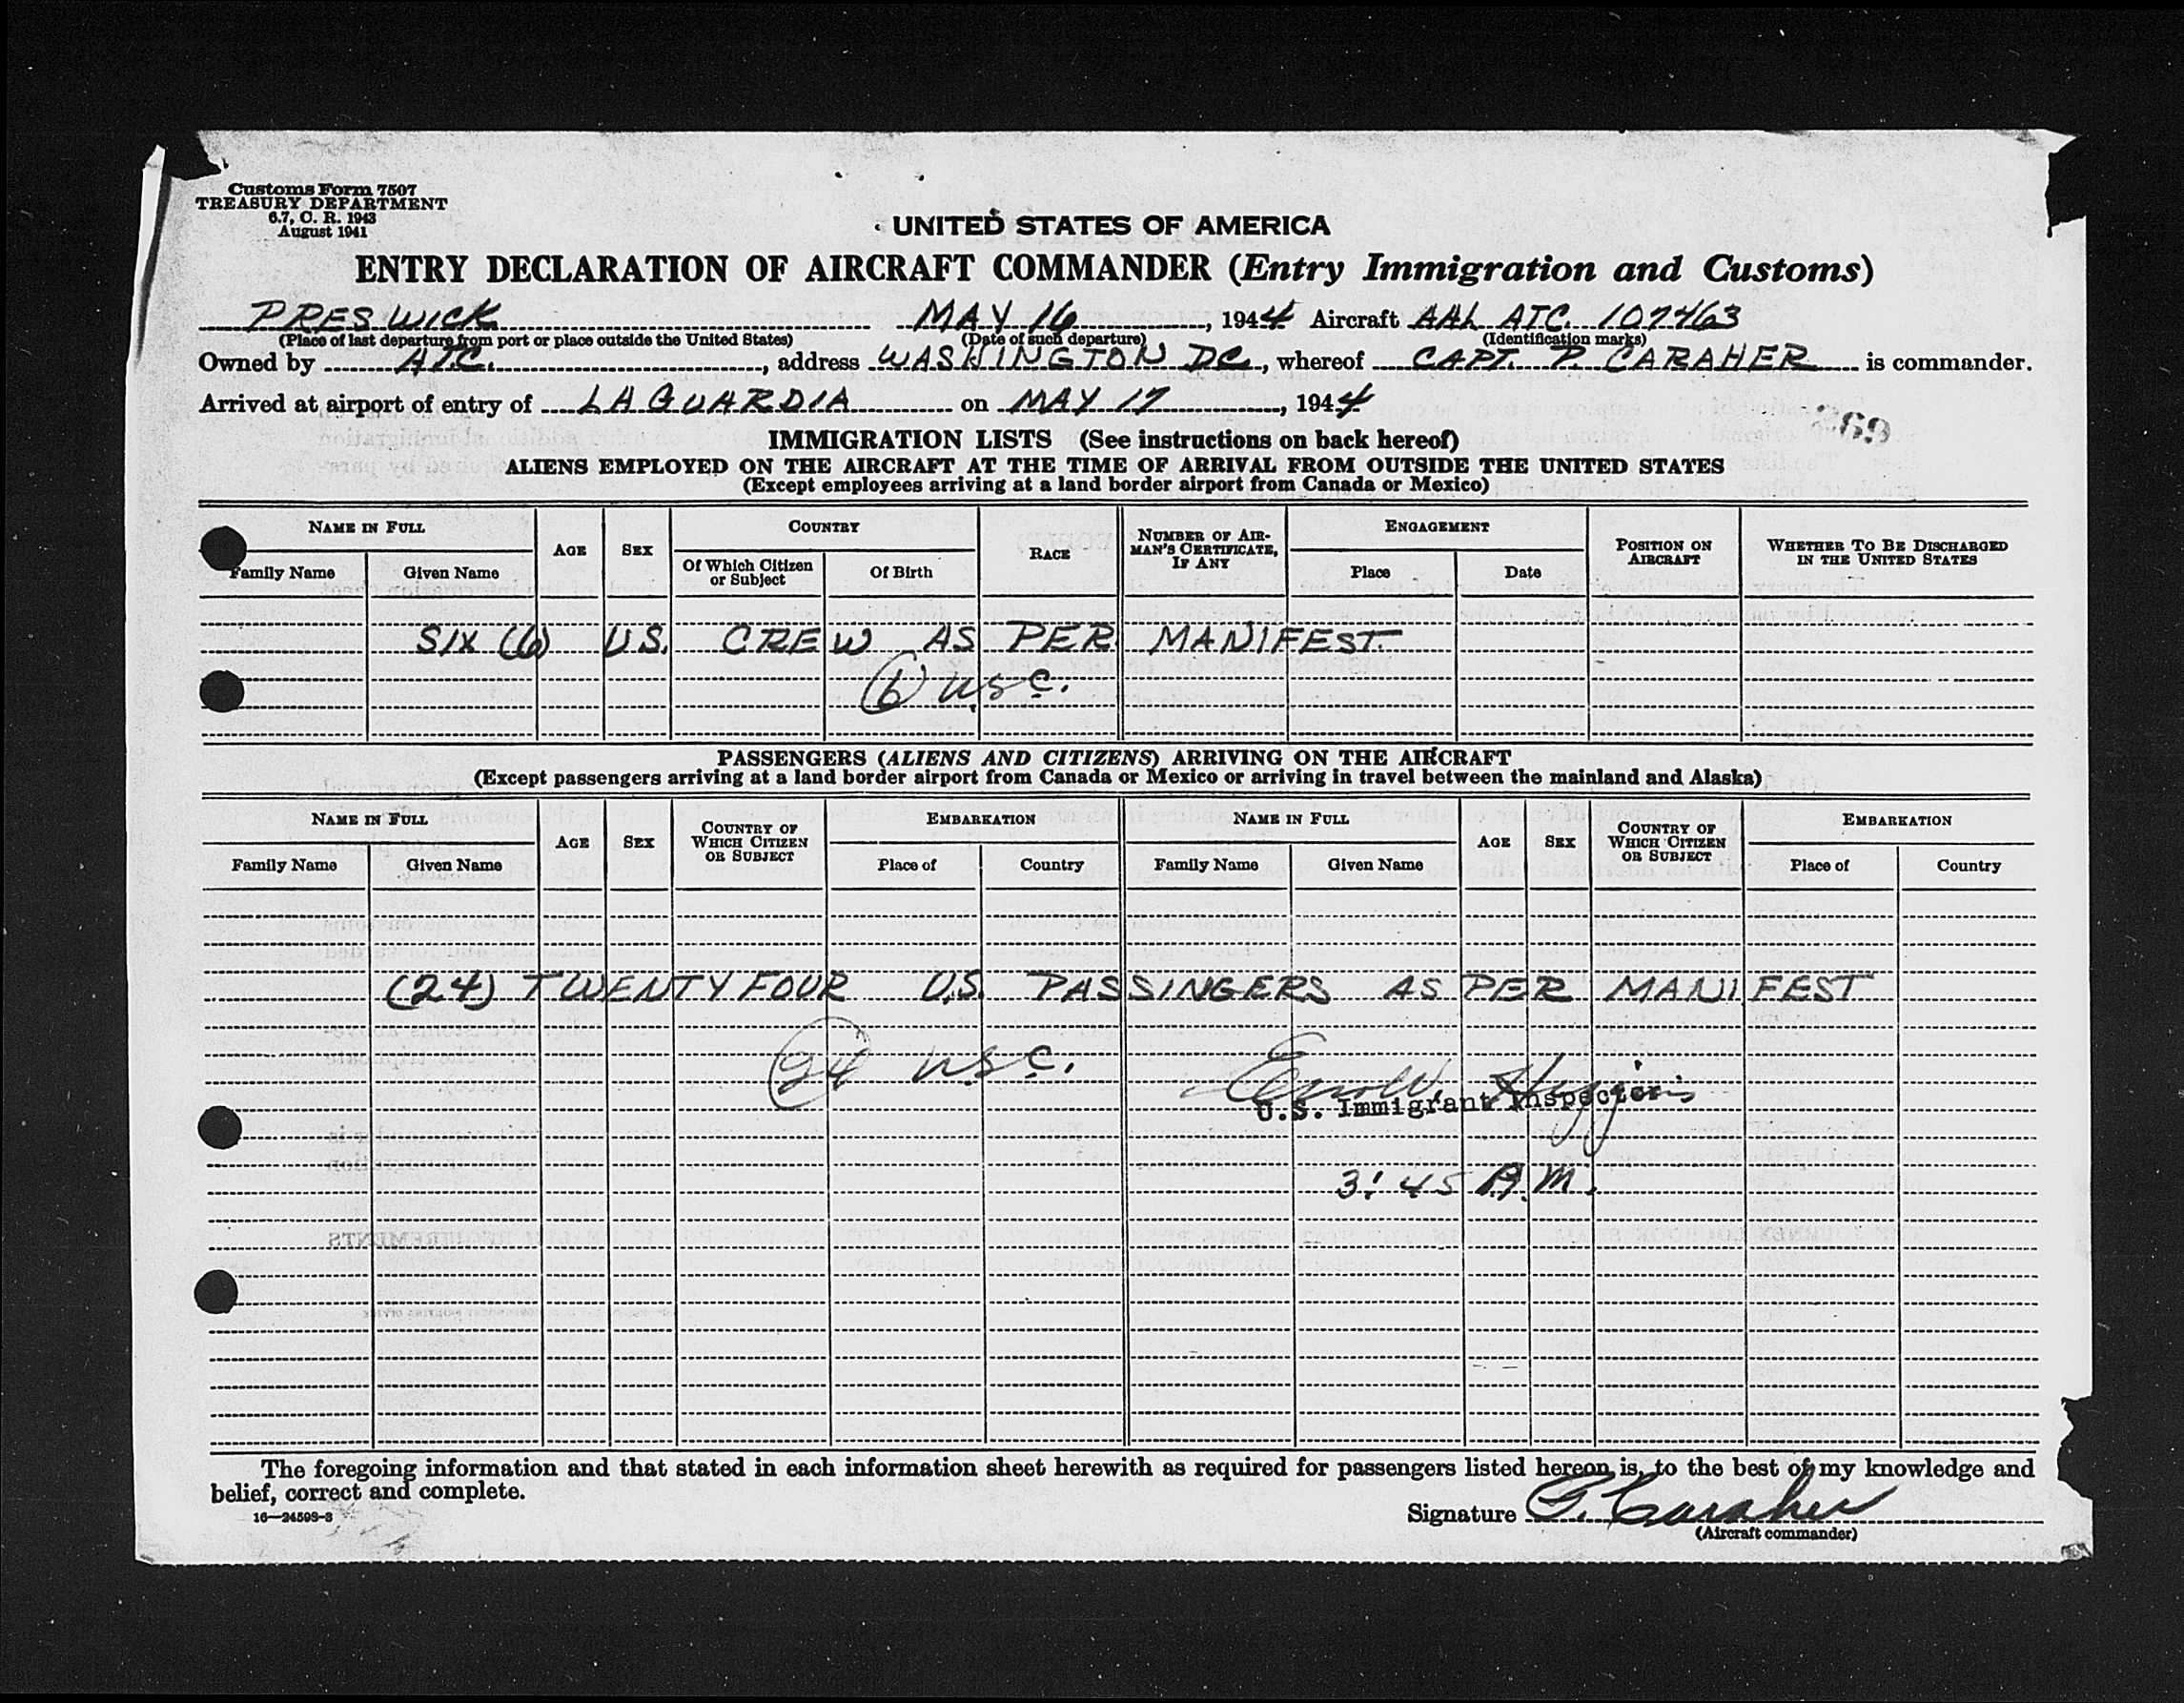 Customs Form 7507
TREASURY DEPARTMENT
6.7, C. R. 1943
August 1941
UNITED STATES OF AMERICA
ENTRY DECLARATION OF AIRCRAFT COMMANDER (Entry Immigration and Customs)
PRESWICK MAY 16, 1944 Aircraft AAL ATC 107463
(Place of last departure from port or place outside the United States) (Date of such departure) (Identification marks)
Owned by ATC., address WASHINGTON DC, whereof CAPT. P. CARAHER is commander.
Arrived at airport of entry of LAGUARDIA on MAY 17, 1944
369
IMMIGRATION LISTS (See instructions on back hereof)
ALIENS EMPLOYED ON THE AIRCRAFT AT THE TIME OF ARRIVAL FROM OUTSIDE THE UNITED STATES
(Except employees arriving at a land border airport from Canada or Mexico)
NAME IN FULL AGE SEX COUNTRY RACE NUMBER OF AIRMAN'S CERTIFICATE, IF ANY ENGAGEMENT POSITION ON AIRCRAFT WHETHER TO BE DISCHARGED IN THE UNITED STATES
Family Name Given Name Of Which Citizen or Subject Of Birth Place Date
SIX (6) U.S. CREW AS PER MANIFEST.
(6) USC.
PASSENGERS (ALIENS AND CITIZENS) ARRIVING ON THE AIRCRAFT
(Except passengers arriving at a land border airport from Canada or Mexico or arriving in travel between the mainland and Alaska)
NAME IN FULL AGE SEX COUNTRY OF WHICH CITIZEN OR SUBJECT EMBARKATION NAME IN FULL AGE SEX COUNTRY OF WHICH CITIZEN OR SUBJECT EMBARKATION
Family Name Given Name Place of Country Family Name Given Name Place of Country
(24) TWENTY FOUR U.S. PASSINGERS AS PER MANIFEST
24 USC.
U.S. Immigrant Inspector
3:45 A.M.
The foregoing information and that stated in each information sheet herewith as required for passengers listed hereon is, to the best of my knowledge and
belief, correct and complete.
16—24598-3
Signature P. Caraher
(Aircraft commander)